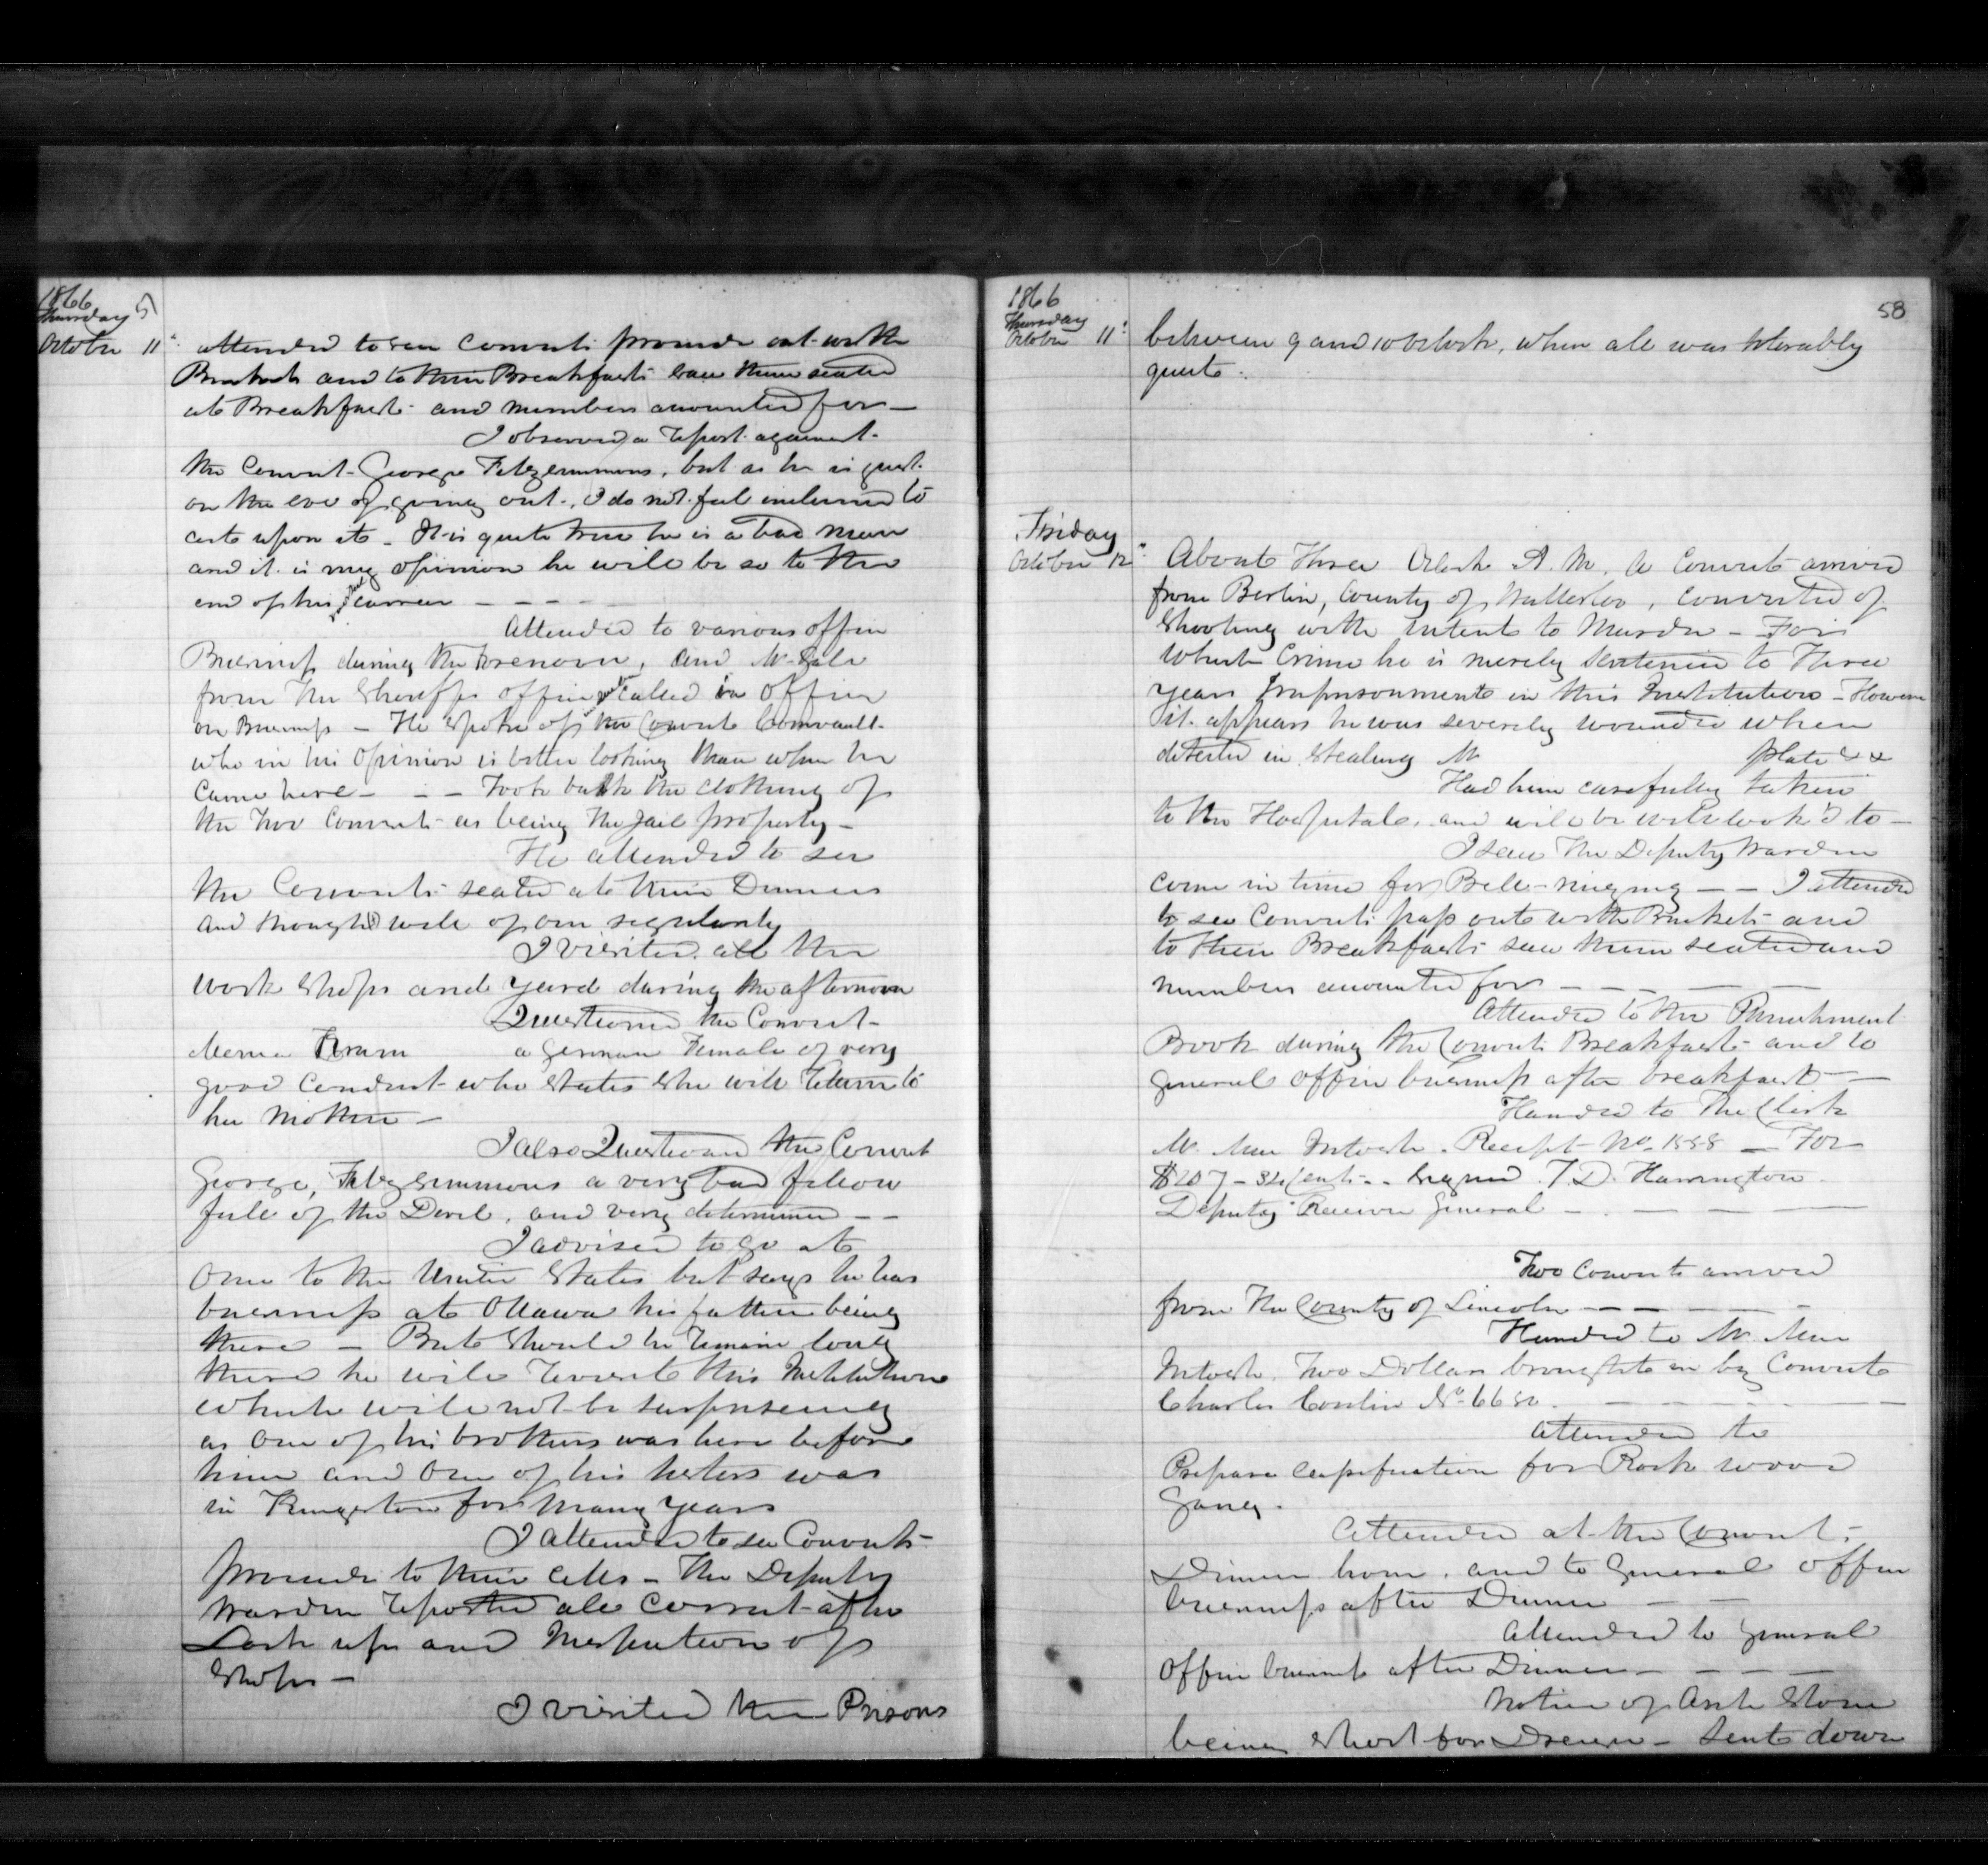 1866
Thursday 57
October 11th attended to see Convicts proceed out with
Buckets and to their Breakfast saw them seated
at Breakfast and numbers accounted for —
I observed a Report against
the Convict George Fitzsimmons, but as he is just
on the eve of going out, I do not feel inclined to
act upon it — It is quite true he is a bad man
and it is my opinion he will be so to the
end of his career — — —
Attended to various office
Business during the forenoon, and Mr
from the Sheriffs office called in office
on Business — He spoke of the Convict
who in his opinion is better looking than when he
came here — — — Took back the clothing of
the two Convicts as being the Jail property —
He attended to see
the Convicts seated at their Dinners
and thought well of our regularity
I visited all the
work shops and yard during the afternoon
Questioned the Convict
a German Female of very
good conduct who states she will return to
her Mother —
I also Questioned the Convict
George Fitzsimmons a very bad fellow
full of the Devil, and very determined — —
I advised to go at
once to the United States but says he has
business at Ottawa his father being
there — But should he remain long
there he will revisit this Institution
which will not be surprising
as one of his brothers was here before
him and one of his sisters was
in Kingston for many years
I attended to see Convicts
proceed to their cells — The Deputy
Warden reported all correct after
Lock up and Inspection of
Shops —
I visited the Prisons
58
1866
Thursday
October 11th between 9 and 10 Oclock, when all was tolerably
quiet.
Friday
October 12th About Three Oclock A.M. a Convict arrived
from Berlin, County of Watterloo, convicted of
Shooting with intent to Murder — For
which Crime he is merely sentenced to Three
years Imprisonment in this Institution — However
it appears he was severely wounded when
detected in stealing Mr plate &x
Had him carefully taken
to the Hospital, and will be well look'd to —
I saw the Deputy Warden
come in time for Bell-ringing — — I attended
to see Convicts pass out with Buckets and
to their Breakfast saw them seated and
numbers accounted for — — — —
Attended to the Punishment
Book during the Convicts Breakfast and to
general office business after breakfast —
Handed to The Clerk
Mr. Mac Intosh. Receipt No. 1558 — For
$207 — 32 Cents — Signed T. D. Harrington
Deputy Receiver General — — — —
Two Convicts arrived
from The County of Lincoln — — — —
Handed to Mr. Mac
Intosh. Two Dollars brought in by Convict
Charles Conlin No. 6680. — — —
Attended to
Prepare Classification for Rock wood
Gang.
Attended at the Convicts
Dinner hour, and to General office
business after Dinner — —
Attended to general
office business after Dinner — — — —
Notice of
being short for — Sent down